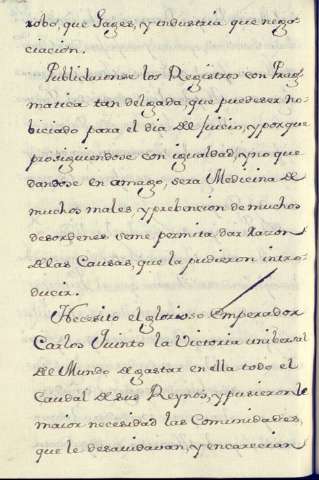 robo, que Gages, y industria que nego-
ciacion.
Publicaronse los Registros con Prag-
matica tan delgada, que puede ser no-
biciado para el dia del Juicio, y porque
prosiguiendose con igualdad, y no que
dandose en amago, será Medicina de
muchos males, y prebencion de muchos
desordenes se me permita dar Razon
de las Causas, que la pudieron intro-
ducir.
Necesitó el glorioso Emperador
Carlos Quinto la Victoria unibersal
del Mundo de gastar en ella todo el
Caudal de sus Reynos, y pusieronle
maior necesidad las Comunidades,
que le desaiudavan, y encarecian